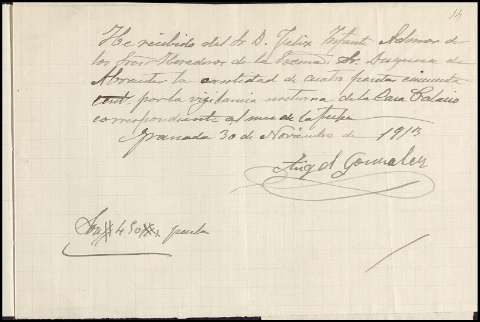 14
He recibido del Sr. D. Felix Infante Admor de
los Sres Herederos de la Excma. Sr. Duquesa de
Abrantes la cantidad de cuatro pesetas cincuenta
cent. por la vigilancia nocturna de la Casa Palacio
correspondiente al mes de la fecha
Granada 30 de Noviembre de 1913
Angel Gonzalez
Son 4 50 pesetas